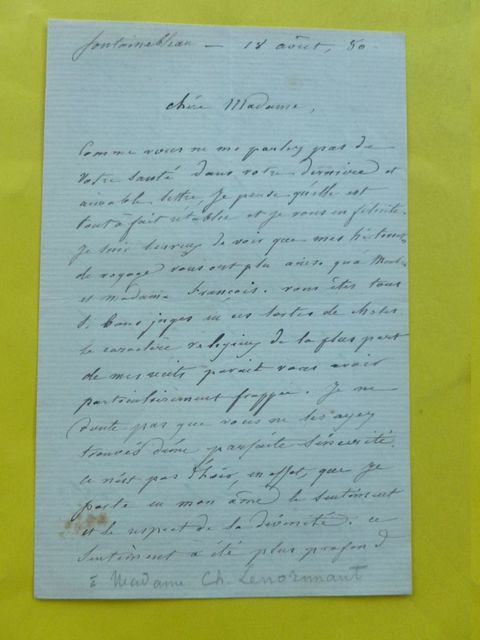 fontainebleau — 18 août, 50.
chère Madame,
Comme vous ne me parlez pas de
votre santé dans votre dernière et
aimable lettre, je pense qu'elle est
tout à fait rétablie et je vous en félicite.
Je suis heureux de voir que mes histoires
de voyage vous ont plu ainsi qu'à
et Madame François. vous êtes tous
bons juges en ces sortes de choses
le caractère religieux de la plus part
de mes récits paraît vous avoir
particulièrement frappée. Je ne
doute pas que vous ne les ayez
trouvés d'une parfaite sincérité.
ce n'est pas d'hier, en effet, que je
porte en mon âme le sentiment
et le respect de la divinité. ce
sentiment a été plus profond
à Madame Ch. Lenormant